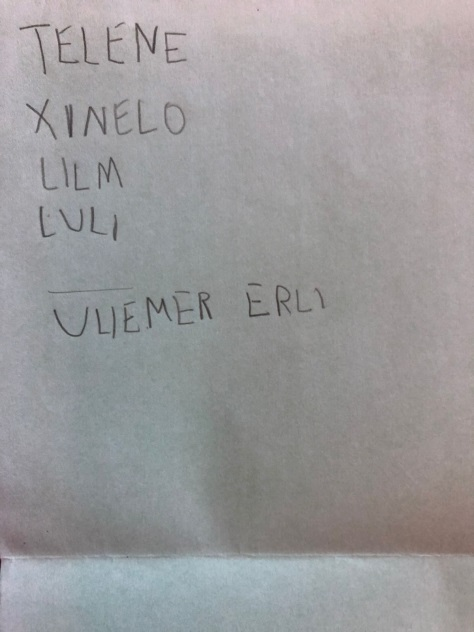 TELENE
XINELO
LILM
LULI
ULIEMER ERLI